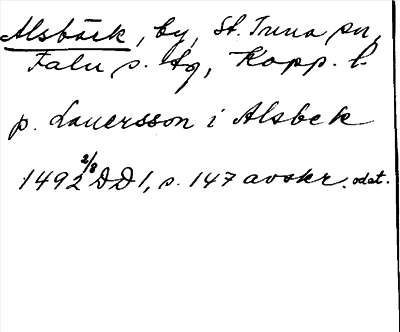 Alsbäck, by, St. Tuna sn,
Falu s. tg, Kopp. l.
p. Lauersson i Alsbek
1492 2/8 DD1, s. 147 avskr. odat.